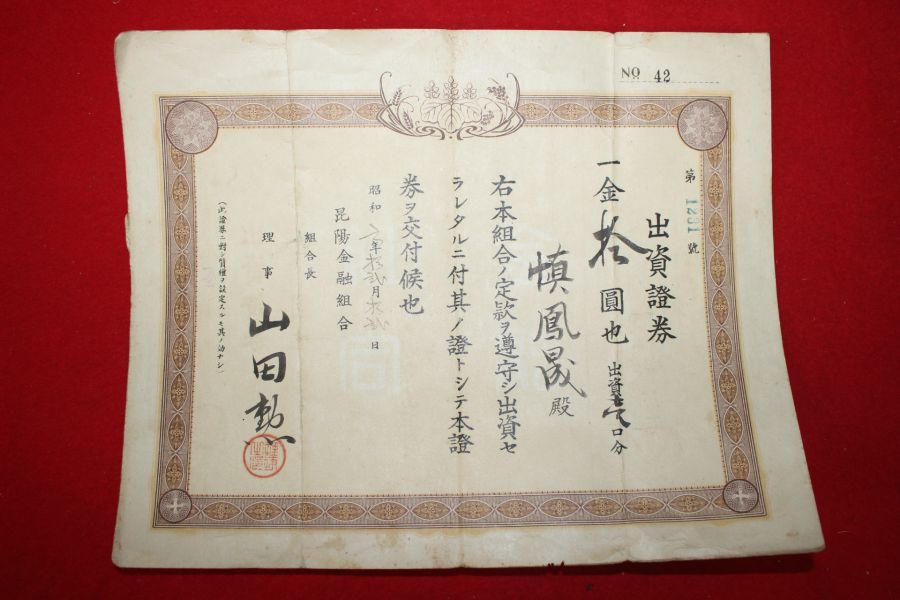 NO 42
第 1251 號
出資證券
一金拾圓也 出資壱口分
愼鳳晟殿
右本組合ノ定款ヲ遵守シ出資セ
ラレタルニ付其ノ證トシテ本證
券ヲ交付候也
昭和二年拾弐月拾弐日
昆陽金融組合
組合長
理事 山田勲
(此證券ニ對シ質權ヲ設定スルモ其ノ効ナシ)